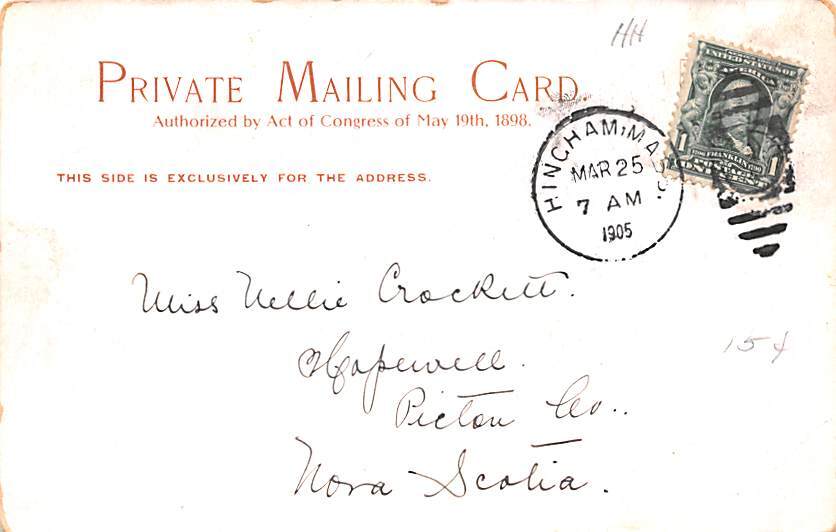 HH
PRIVATE MAILING CARD.
Authorized by Act of Congress of May 19th, 1898.
THIS SIDE IS EXCLUSIVELY FOR THE ADDRESS.
HINGHAM, MASS.
MAR 25
7 AM
1905
UNITED STATES OF AMERICA
1 FRANKLIN 1
Miss Nellie Crockett.
Hopewell.
Pictou Co..
Nova Scotia.
15¢